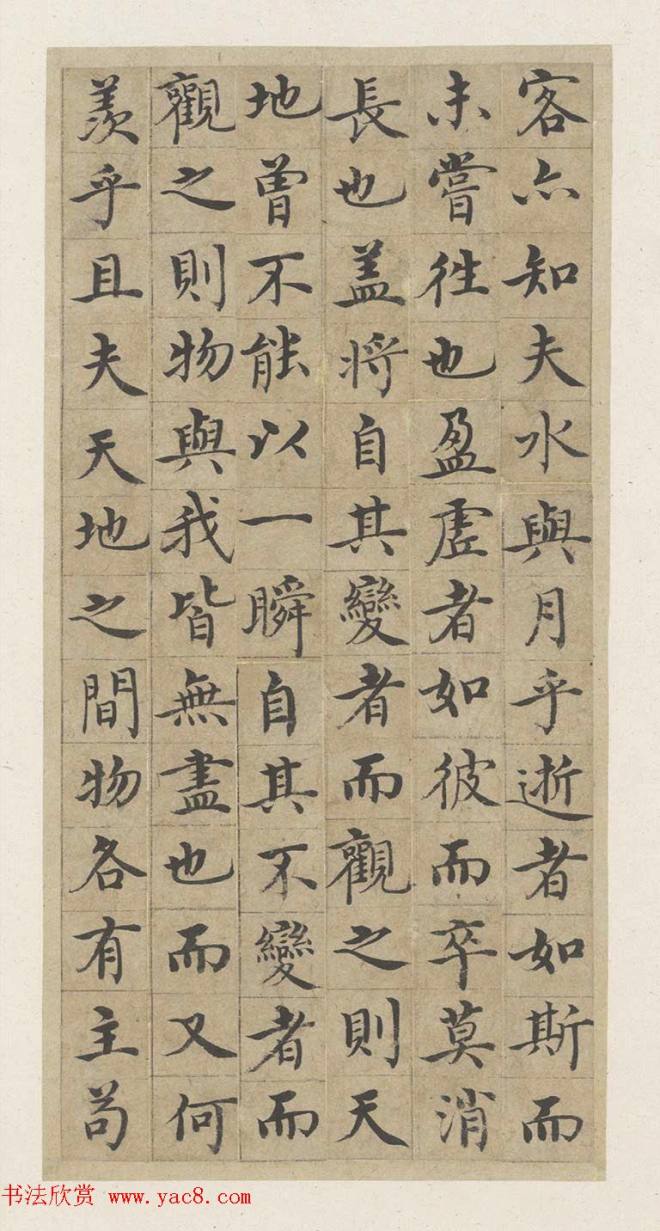 客亦知夫水與月乎逝者如斯而
未嘗往也盈虗者如彼而卒莫消
長也盖將自其變者而觀之則天
地曾不能以一瞬自其不變者而
觀之則物與我皆無盡也而又何
羨乎且夫天地之間物各有主苟
书法欣赏 www.yac8.com